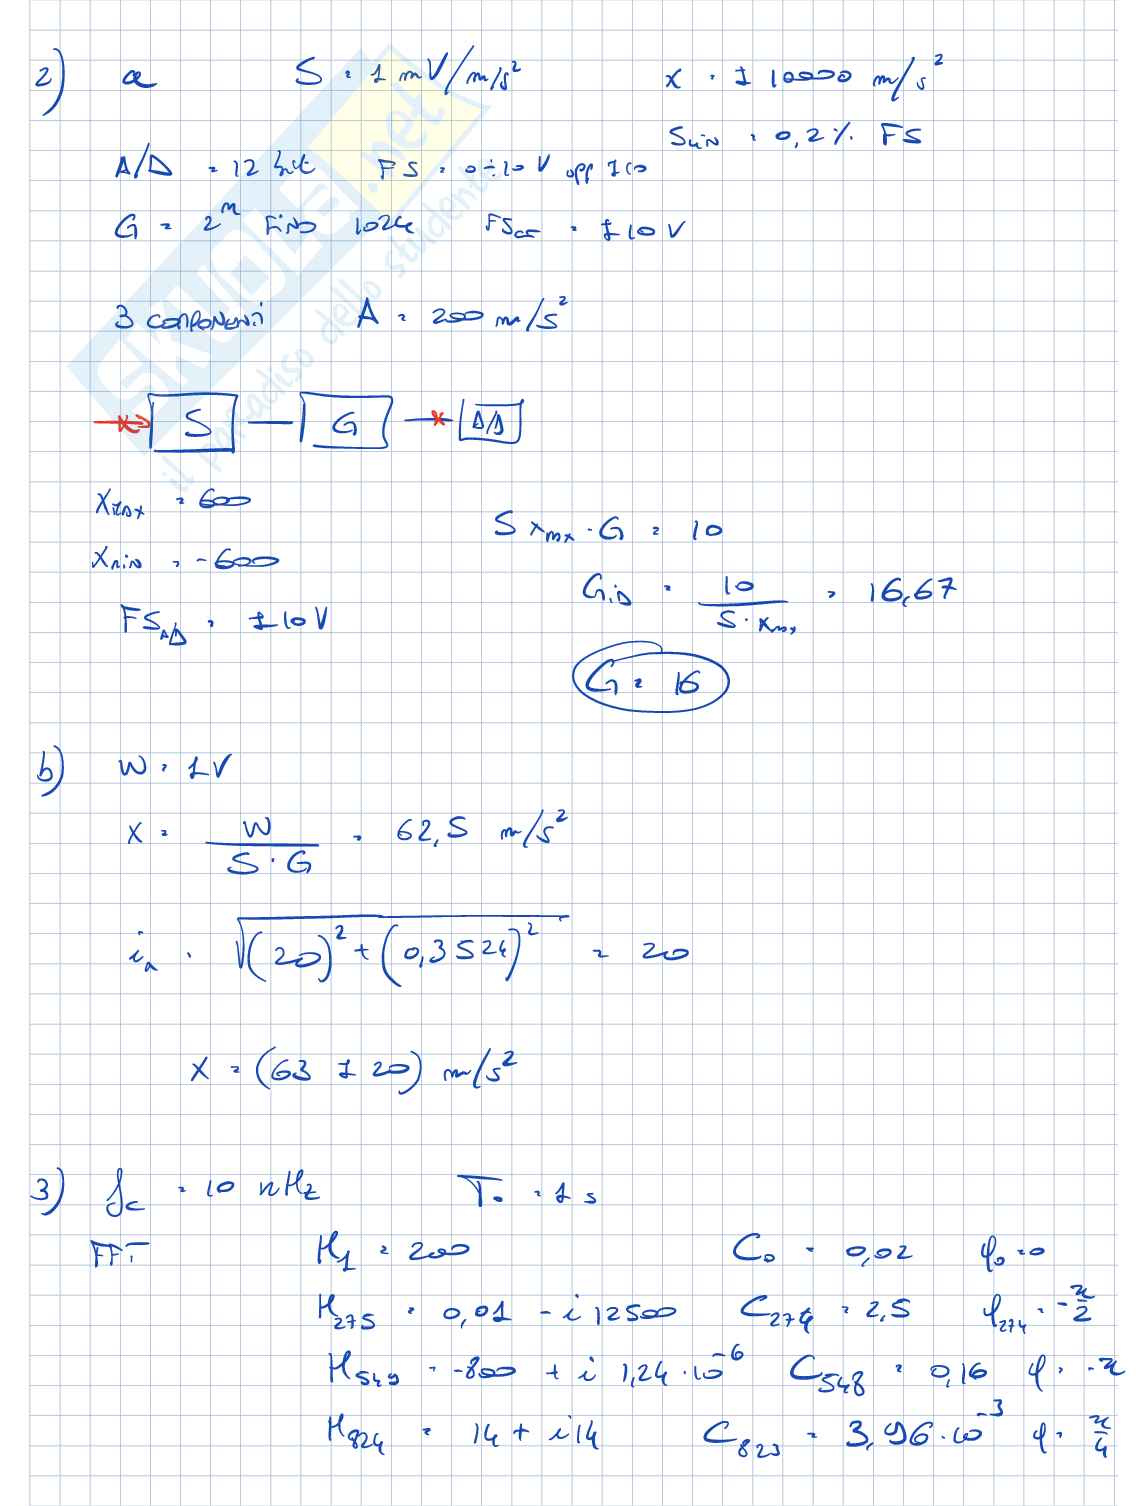 2) a S = 1 mV/m/s² x = ± 10000 m/s²
Slin = 0,2 % FS
A/D = 12 bit FS = 0÷10 V opp ±10
G = 2ⁿ FINO 1024 FS = ±10 V
3 COMPONENTI A = 200 m/s²
S G A/D
Xmax = 600
Xmin = -600
S xmax · G = 10
FS_A/D = ±10 V
G_iD = 10 / (S · Xmax) = 16,67
G = 16
b) W = 1V
X = W / (S · G) = 62,5 m/s²
i_a = √((20)² + (0,3524)²) = 20
X = (63 ± 20) m/s²
3) fc = 10 kHz T₀ = 1 s
FFT H₁ = 200 C₀ = 0,02 φ₀ = 0
H₂₇₅ = 0,01 - i 12500 C₂₇₄ = 2,5 φ₂₇₄ = -π/2
H₅₄₉ = -800 + i 1,24·10⁻⁶ C₅₄₈ = 0,16 φ = -π
H₈₂₄ = 14 + i14 C₈₂₃ = 3,96·10⁻³ φ = π/4
SKUOLA.net
il paradiso dello studente